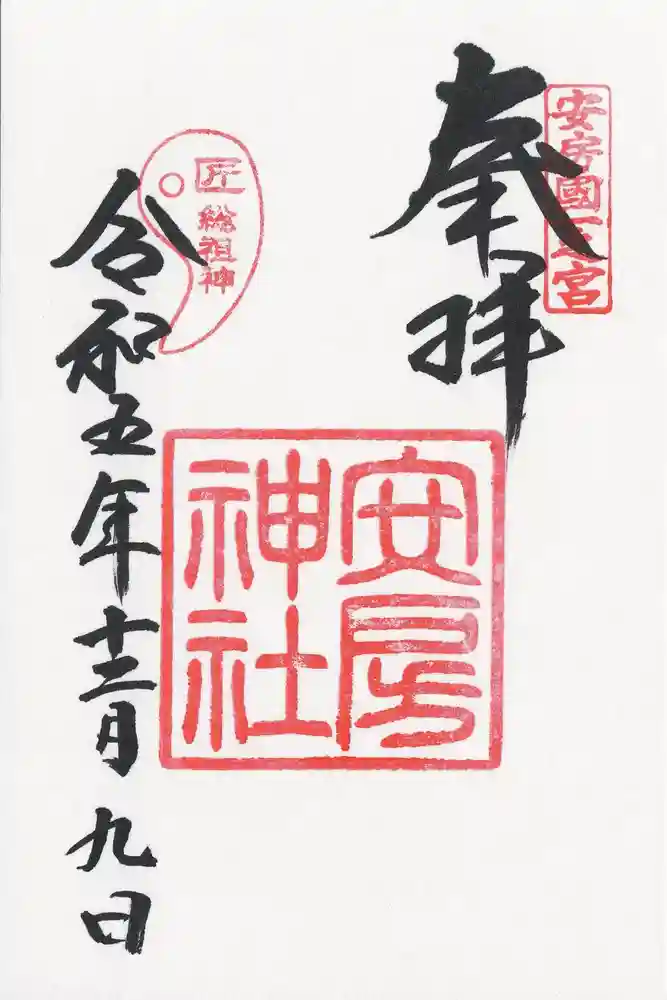 安房國一之宮
奉拝
安房
神社
匠
総祖神
令和五年十二月九日